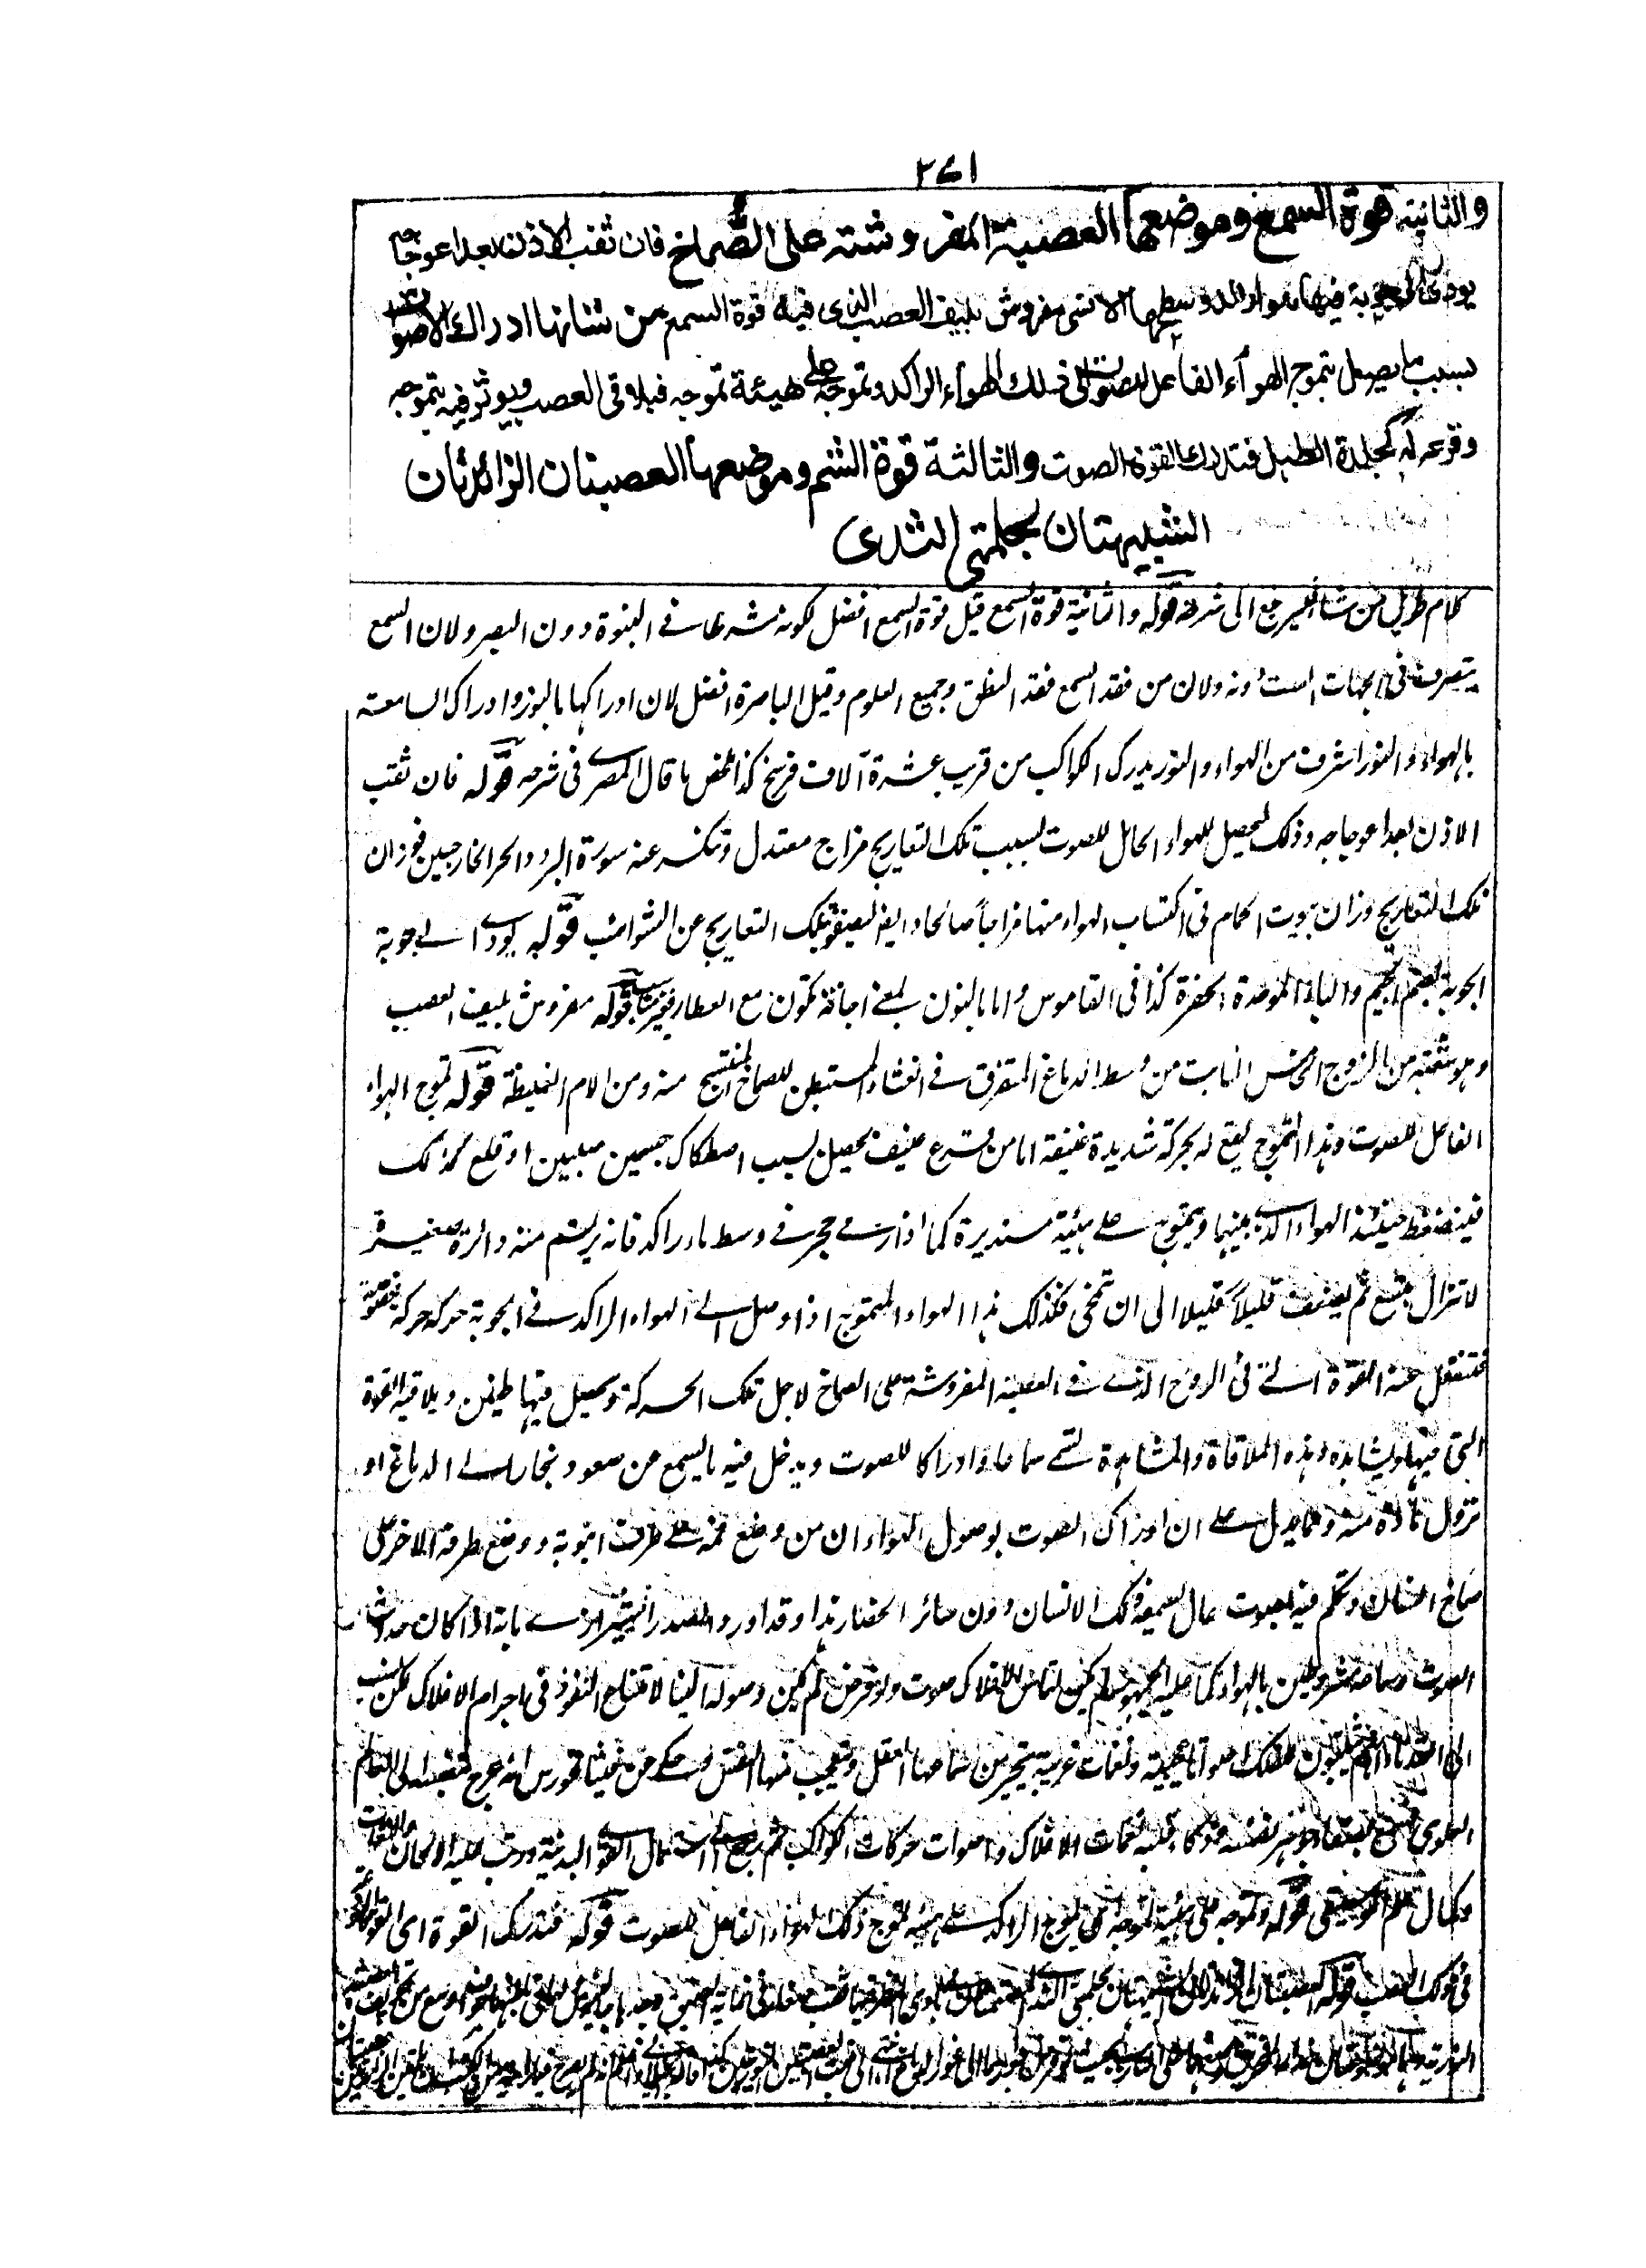 ٢٧١
والثانية قوة السمع وموضعها العصبة المفروشة على الصماخ فان ثقب الاذن بعد اعوجاجه
يودى الى جوبة فيها هواء راكد وسطحها الانسى مفروش بليف العصب الذى فيه قوة السمع من شانها ادراك الاصوات
بسبب ما يصل بتموج الهواء الفاعل للصوت الى ذلك الهواء الراكد وتموجه على هيئة تموجه فيلاقى العصب ويوثر فيه بتموجه
وقرعه له كجلدة الطبل فتدرك القوة الصوت والثالثة قوة الشم وموضعها العصبتان الزائدتان
الشبيهتان بحلمتى الثدى
كلام طويل من شاء فليرجع الى شرحه قوله والثانية قوة السمع قيل قوة السمع افضل لكونه شرطا فى النبوة دون البصر ولان السمع
يتصرف فى الجهات الست دونه ولان من فقد السمع فقد النطق وجميع العلوم وقيل الباصرة افضل لان ادراكها بالنور وادراك السامعة
بالهواء والنور اشرف من الهواء والنور يدرك الكواكب من قريب عشرة آلاف فرسخ كذا لخص ما قال المصرى فى شرحه قوله فان ثقب
الاذن بعد اعوجاجه وذلك ليحصل للهواء الحامل للصوت بسبب تلك التعاريج مزاج معتدل وتنكسر عنه سورة البرد والحر الخارجيين فوزان
تلك التعاريج وزان بيوت الحمام فى اكتساب الهواء منها مزاجا صالحا وايضا ليصفو بتلك التعاريج عن الشوائب قوله يودى الى جوبة
الجوبة بضم الجيم والباء الموحدة الحفرة كذا فى القاموس واما بالنون بمعنى اجانة تكون مع العطار فغير مناسب قوله مفروش بليف العصب
وهو شعبة من الزوج الخامس النابت من وسط الدماغ المتفرق فى الغشاء المستبطن للصماخ المنتسج منه ومن الام الغليظة قوله تموج الهواء
الفاعل للصوت وهذا التموج يقع له بحركة شديدة عنيفة اما من قرع عنيف يحصل بسبب اصطكاك جسمين صلبين او قلع كذلك
فينضغط حينئذ الهواء الذى بينهما ويتموج على هيئة مستديرة كما اذا رمى حجر فى وسط ماء راكد فانه يرتسم منه دائرة صغيرة
لا تزال تتسع ثم يضعف قليلا قليلا الى ان تمحى فكذلك هذا الهواء المتموج اذا وصل الى الهواء الراكد فى الجوبة حركه حركة
فتنفعل عنه القوة التى فى الروح الذى فى العصبة المفروشة على الصماخ لاجل تلك الحركة ويحصل فيها طنين ويلاقيه القوة
التى فيها ويشاهده وهذه الملاقاة والمشاهدة تسمى سماعا وادراكا للصوت ويدخل فيه ما يسمع من صعود بخار الى الدماغ او
نزول مادة منه ومما يدل على ان ادراك الصوت بوصول الهواء ان من وضع فمه على طرف انبوبة ووضع طرفه الاخر على
صماخ انسان وتكلم فيه بصوت عال سمعه ذلك الانسان دون سائر الحضار هذا وقد اورد الصدر الشيرازى بانه اذا كان حدوث
الصوت وسماعه مشروطين بالهواء كما عليه الجمهور لم يكن لتماس الافلاك صوت ولو فرض لم يمكن وصوله الينا لامتناع النفوذ فى اجرام الافلاك لكن نسب
الى القدماء انهم يثبتون للفلك اصواتا عجيبة ونغمات غريبة يتحير من سماعها العقل وتتعجب منها النفس وحكى عن فيثاغورس انه عرج بنفسه الى العالم
العلوى فسمع بصفاء جوهر نفسه وذكاء قلبه نغمات الافلاك واصوات حركات الكواكب ثم رجع الى استعمال القوى البدنية ورتب عليه الالحان والنغمات
وكمال علم الموسيقى قوله وتموجه على هيئة تموجه اى يتموج الراكد على هيئة تموج ذلك الهواء الفاعل للصوت قوله فتدرك القوة اى
فى ذلك العصب قوله العصبتان الزائدتان الشبيهتان بحلمتى الثدى